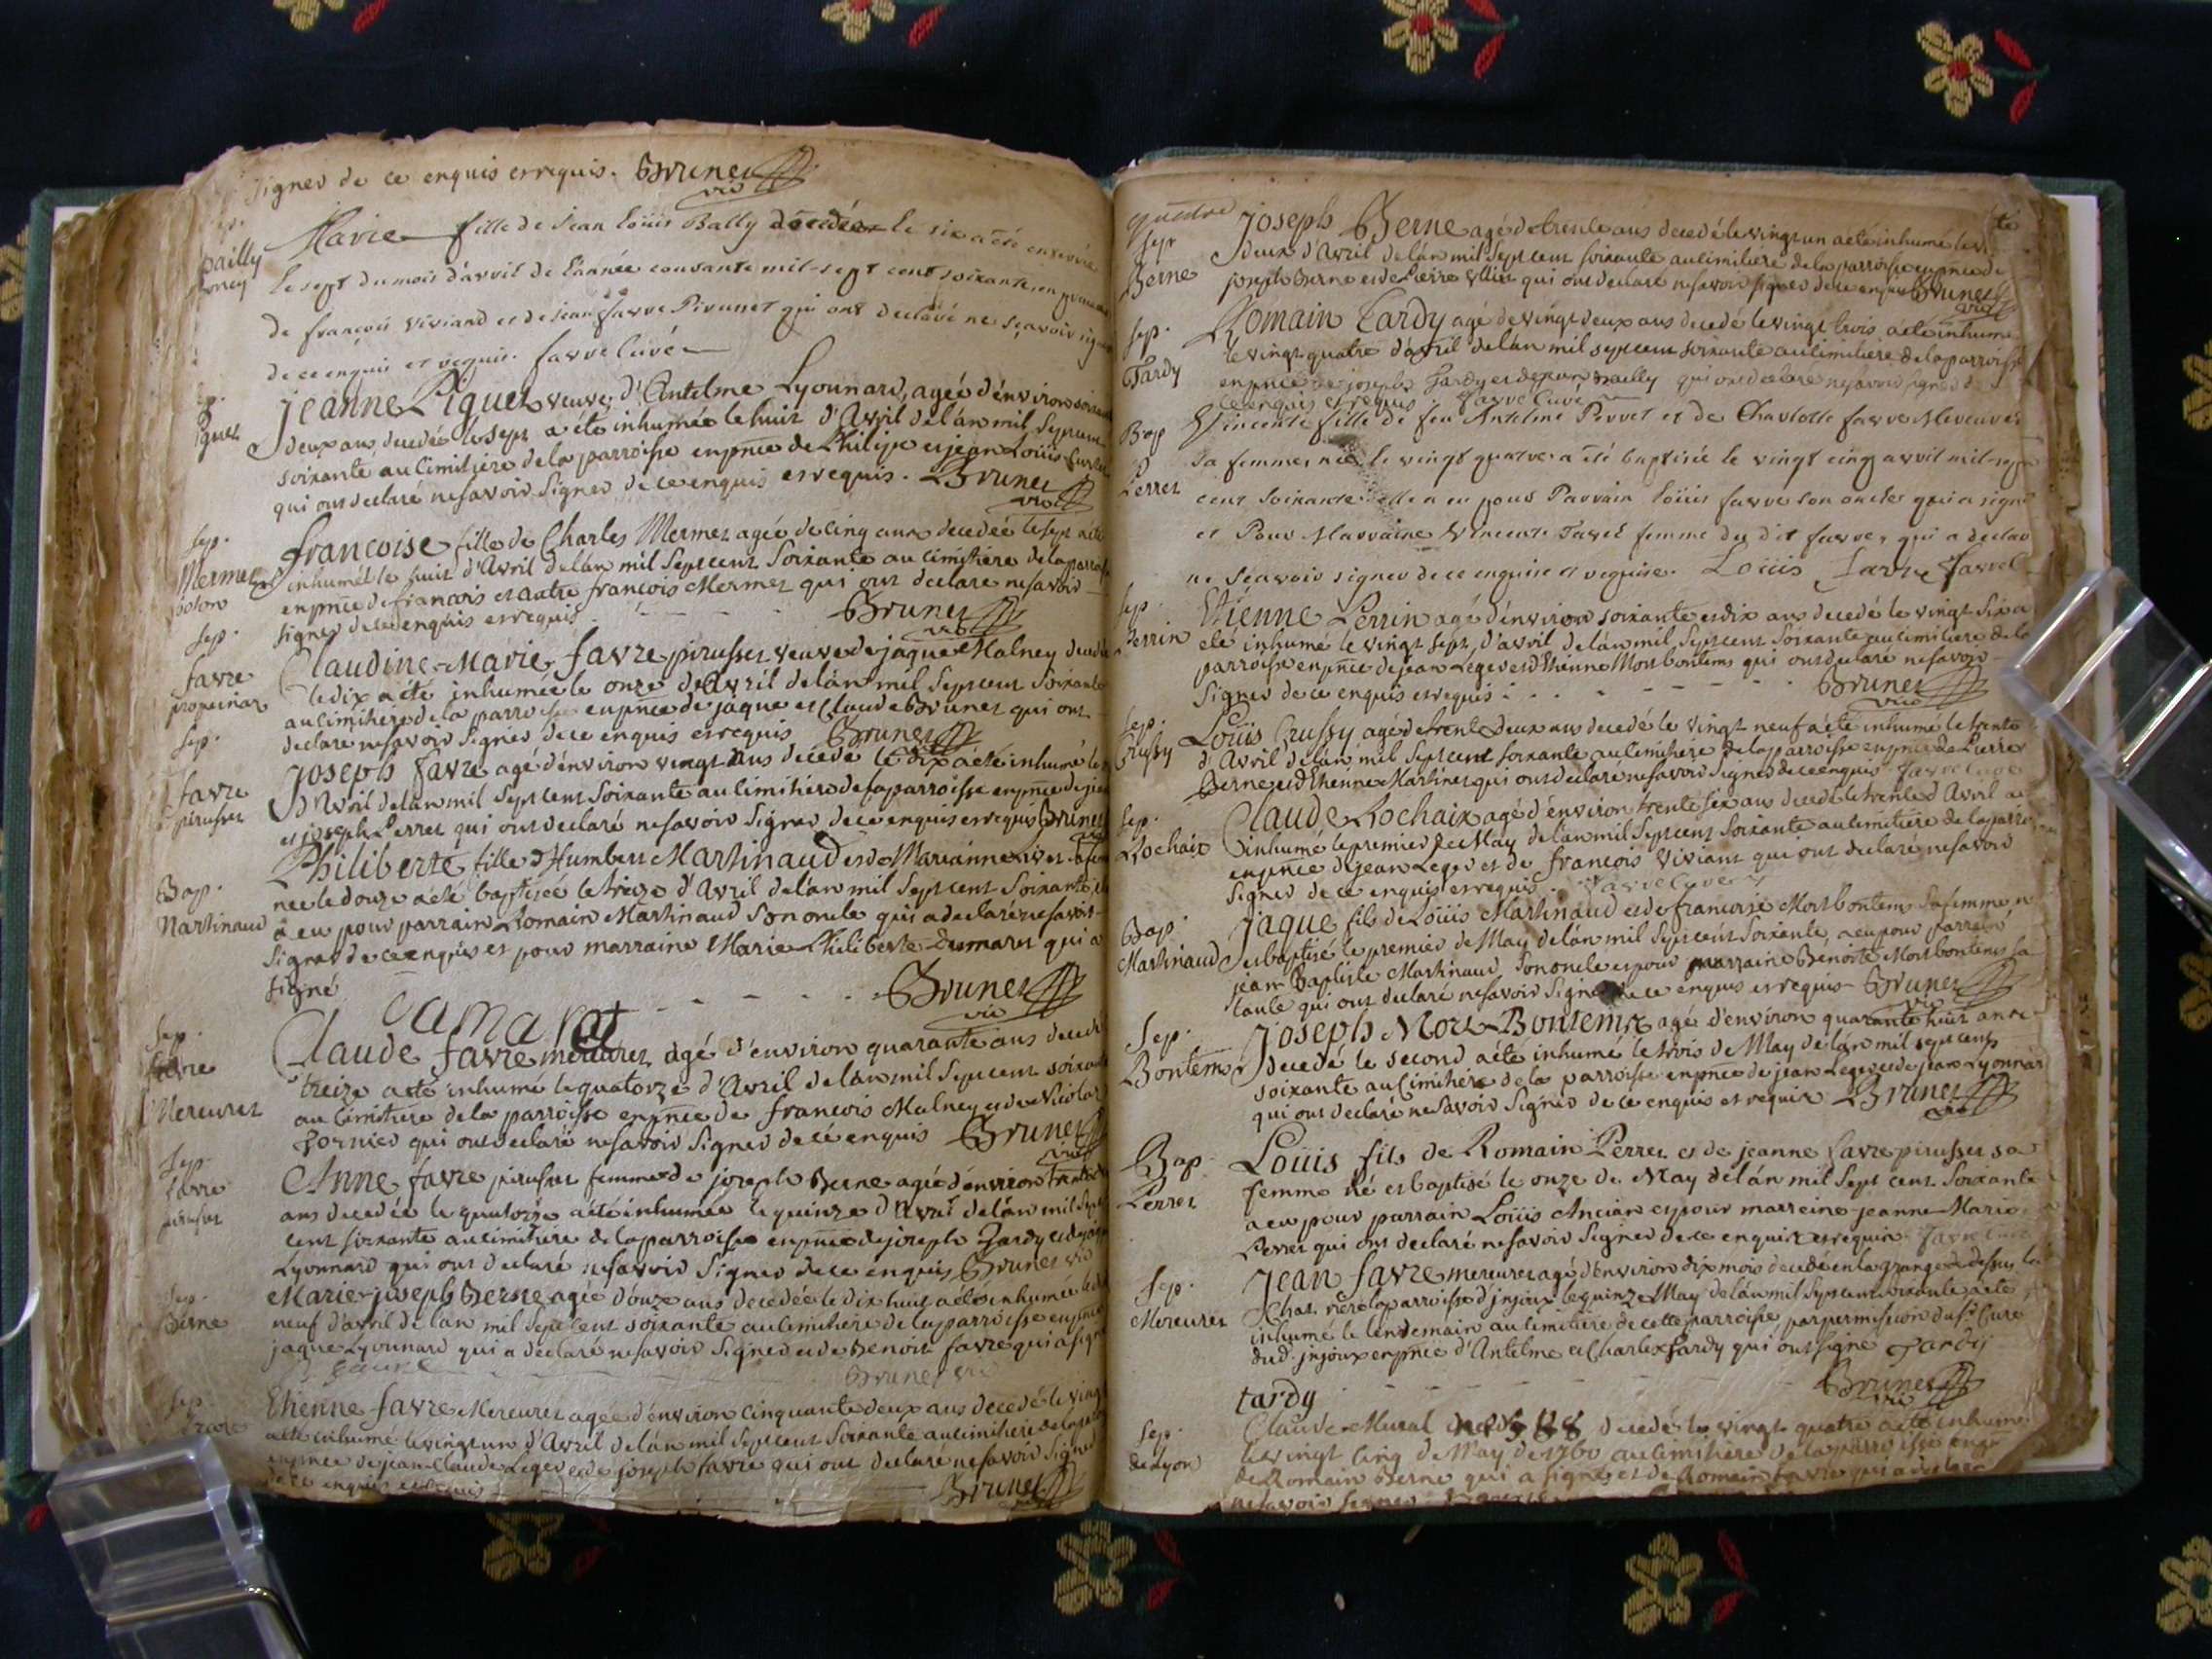 signer de ce enquis et requis. Brunet
vic
bailly
Marie fille de Jean Loüis Bally décédée le six a été enterrée
le sept du mois d'avril de l'année courante mil-sept cent soixante, en
de françois Viviand et de Jean favre Pirunet qui ont declaré ne sçavoir signer
de ce enquis et requis. favre Curé
sep.
Piquet
Jeanne Piquet veuve d'Antelme Lyonnard, agée d'énviron
deux ans decedée le sept a été inhumée le huit d'Avril de lán mil sept cent
soixante au cimitiere de la parroisse en pnce de Philipe et jean Loüis
qui ont declaré ne savoir signer de ce enquis et requis. Brunet
vic
sep.
Mermet
françoise fille de Charles Mermet agée de cinq ans decedée le sept a été
inhumée le huit d'Avril de lán mil sept cent soixante au cimitiere de la parroisse
en pnce de francois et autre françois Mermet qui ont declare ne savoir
signer de ce enquis et requis Brunet
vic
sep.
favre
Claudine-Marie favre pirusset veuve de jaque Malney decedée
le dix a été inhumée le onze d'Avril de lán mil sept cent soixante
au cimitiere de la parroisse en pnce de jaque et Claude Brunet qui ont
declaré ne savoir signer de ce enquis et requis Brunet
sep.
favre
pirusset
Joseph favre agé d'énviron vingt ans décédé le dix a été inhumé le
d'Avril de lán mil sept cent soixante au cimitiere de la parroisse en pnce de
et joseph Perret qui ont declaré ne savoir signer de ce enquis et requis Brunet
Bap.
Martinaud
Philiberte fille d'Humbert Martinaud et de Marianne sa femme
née le douze a été baptisée le treize d'Avril de lán mil sept cent soixante
a eu pour parrain Romain Martinaud son oncle qui a declaré ne savoir
signer de ce enquis et pour marraine Marie Philiberte Dumaret qui a
signé Brunet
vic
Sep.
favre
Mercuret
Claude favre mercuret agé d'environ quarante ans decedé
treize a été inhumé le quatorze d'Avril de lán mil sept cent soixante
au cimitiere de la parroisse en pnce de francois Malney et de Nicolas
fornier qui ont declaré ne savoir signer de ce enquis Brunet
vic
Sep.
favre
pirusset
Anne favre pirusset femme de joseph Berne agée d'énviron trente
ans decedée le quatorze a été inhumée le quinze d'Avril de lán mil sept
cent soixante au cimitiere de la parroisse en pnce de joseph Tardy et de
Lyonnard qui ont declaré ne savoir signer de ce enquis Brunet vic
Sep.
Berne
Marie-joseph Berne agée d'ouze ans decedée le dix huit a été inhumée le dix
neuf d'avril de lán mil sept cent soixante au cimitiere de la parroisse en pnce
jaque Lyonnard qui a declaré ne savoir signer et de Benoit favre qui a signé
favre Brunet vic
Sep.
favre
Etienne favre Mercuret agée d'énviron cinquante deux ans decedé le vingt
a été inhumé le vingt un d'Avril de lán mil sept cent soixante au cimitiere de la parroisse
en pnce de jean-Claude Leger et de joseph favre qui ont declaré ne savoir signer
de ce enquis et requis Brunet
vic
sep
Berne
Joseph Berne agé de trente ans decedé le vingt un a été inhumé le vingt
deux d'Avril de lán mil sept cent soixante au cimitiere de la parroisse en pnce de
joseph Berne et de Pierre Ullier qui ont declaré ne savoir signer de ce enquis Brunet
vic
sep.
Tardy
Romain Tardy agé de vingt deux ans decedé le vingt trois a été inhumé
le vingt quatre d'avril de lán mil sept cent soixante au cimitiere de la parroisse
en pnce de joseph Tardy et de jean Bailly qui ont declaré ne savoir signer de
ce enquis et requis favre Curé
Bap
Perret
Vincente fille de feu Antelme Perret et de Charlotte favre Mercuret
sa femme, née le vingt quatre a été baptisée le vingt cinq avril mil-sept
cent soixante. elle a eu pour Parrain Loüis favre son oncle qui a signé
et Pour Marraine Vincente Tavel femme du dit favre, qui a declaré
ne sçavoir signer de ce enquise et requise. Loüis favre favre
sep.
Perrin
Etienne Perrin agé d'énviron soixante et dix ans decedé le vingt six a
été inhumé le vingt sept d'avril de lán mil sept cent soixante au cimitiere de la
parroisse en pnce de jean Leger et d'Etienne Mortbontems qui ont declaré ne savoir
signer de ce enquis et requis Brunet
vic
Sep.
Crussy
Loüis Crussy agé de trente deux ans decedé le vingt neuf a été inhumé le trente
d'Avril de lán mil sept cent soixante au cimitiere de la parroisse en pnce de Pierre
Berne et d'Etienne Martinet qui ont declaré ne savoir signer de ce enquis favre Curé
sep.
Rochaix
Claude Rochaix agé d'énviron trente six ans decedé le trente d'Avril a été
inhumé le premier de May de lán mil sept cent soixante au cimitiere de la parroisse
en pnce de jean Leger et de francois Viviant qui ont declaré ne savoir
signer de ce enquis et requis. favre Curé
Bap.
Martinaud
Jaque fils de Loüis Martinaud et de francoise Mortbontems sa femme né
et baptisé le premier de May de lán mil sept cent soixante, a eu pour parrain
jean Baptiste Martinaud son oncle et pour marraine Benoite Mortbontems sa
tante qui ont declaré ne savoir signer de ce enquis et requis Brunet
vic
Sep.
Bontems
Joseph Mort-Bontems agé d'environ quarante huit ans
decedé le second a été inhumé le trois de May de lán mil sept cent
soixante au Cimitiére de la parroisse en pnce de jean Leger et de jean Lyonnard
qui ont declaré ne savoir signer de ce enquis et requis Brunet
vic
Bap.
Perret
Loüis fils de Romain Perret et de jeanne favre pirusset sa
femme né et baptisé le onze de May de lán mil sept cent soixante
a eu pour parrain Loüis Ancian et pour marreine jeanne-Marie
Perret qui ont declaré ne savoir signer de ce enquis et requis favre Curé
Sep.
Mercuret
Jean favre mercuret agé d'énviron dix mois decedé en la grange de dessus la
Char riére la parroisse d'injoux le quinze May de lán mil sept cent soixante a été
inhumé le lendemain au cimitiere de cette parroisse par permission du Sr Curé
dud. injoux en pnce d'Antelme et Charles Tardy qui ont signé Tardy
tardy Brunet
vic
Sep.
de Lyon
Claude Mural decedé le vingt quatre a été inhumé
le vingt cinq de May de 1760 au cimitiére de la parroisse en
de Romain Berne qui a signé et de Romain favre qui a declaré
ne savoir signer